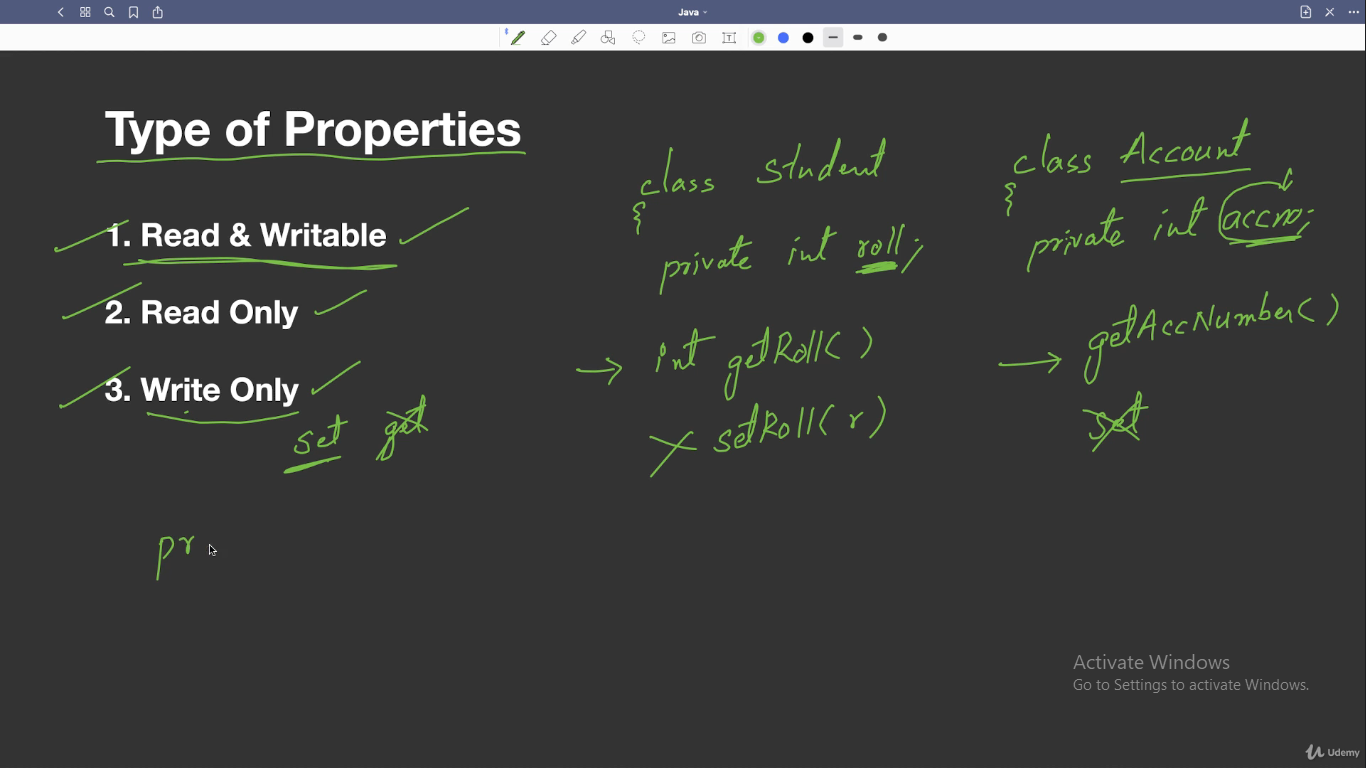 Java
Type of Properties
1. Read & Writable
2. Read Only
3. Write Only
set get
pr
class Student
{
private int roll;
int getRoll( )
setRoll( r )
class Account
{
private int accno;
getAccNumber( )
set
Activate Windows
Go to Settings to activate Windows.
Udemy